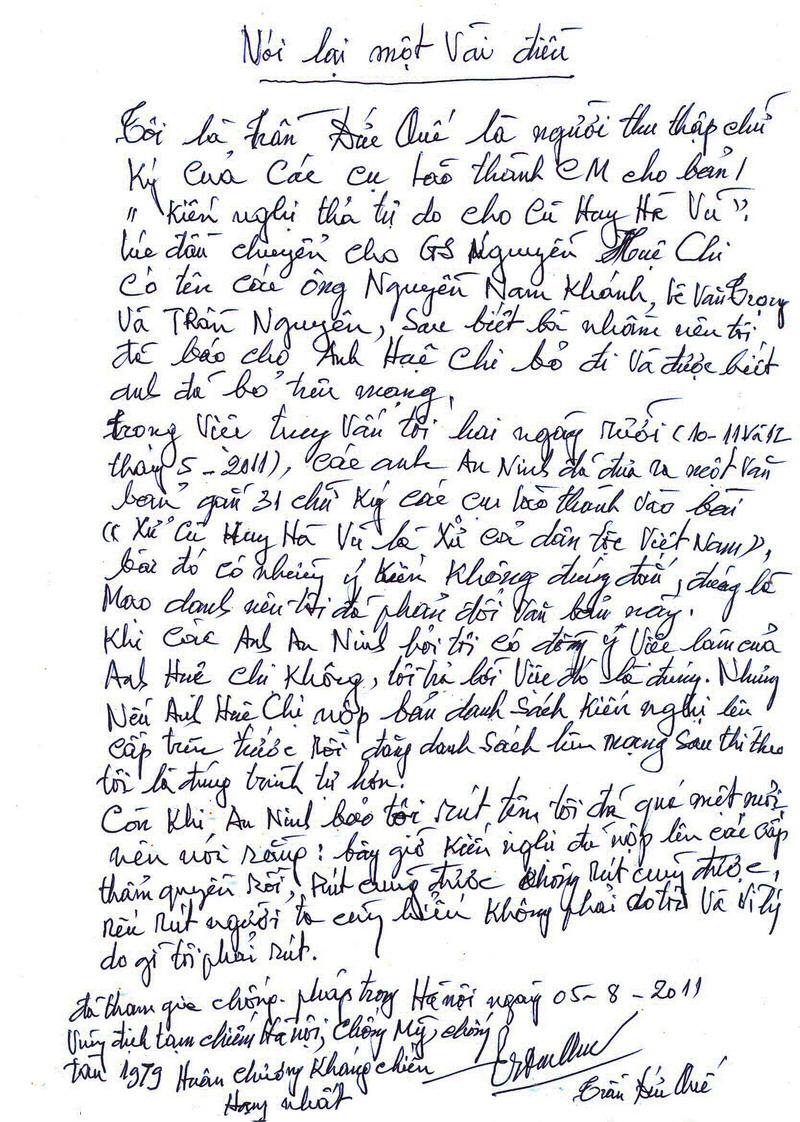 Nói lại một Vài điều
Tôi là Trần Đức Quế là người thu thập chữ
Ký của Các cụ Lão thành CM cho bản
" Kiến nghị thả tự do cho Cù Huy Hà Vũ".
Lúc đầu chuyển cho GS Nguyễn Huệ Chi
Có tên các ông Nguyễn Nam Khánh, Lê Văn Trọng
Và Trần Nguyên, Sau biết bị nhầm nên tôi
đã báo cho Anh Huệ Chi bỏ đi Và được biết
anh đã bỏ trên mạng.
Trong Việc truy Vấn tôi hai ngày rưỡi (10-11 Và 12
tháng 5-2011), các anh An Ninh đã đưa ra một Văn
bản gắn 31 chữ Ký các cụ Lão thành vào bài
"Xử Cù Huy Hà Vũ là Xử cả dân tộc Việt Nam",
bài đó có những ý Kiến Không đúng đắn, đúng là
Mạo danh nên tôi đã phản đối Văn bản này.
Khi các Anh An Ninh hỏi tôi có đồng ý Việc làm của
Anh Huệ Chi Không, tôi trả lời Việc đó là đúng. Nhưng
Nếu Anh Huệ Chi nộp bản danh Sách Kiến nghị lên
Cấp trên trước rồi đăng danh Sách lên mạng Sau thì theo
tôi là đúng trình tự hơn.
Còn Khi An Ninh bảo tôi rút tên tôi đã quá mệt mỏi
nên nói rằng: bây giờ Kiến nghị đã nộp lên các cấp
thẩm quyền rồi, Rút cũng được Không Rút cũng được,
nếu Rút người ta cũng hiểu Không phải do tôi Và Vì lý
do gì tôi phải rút.
đã tham gia chống pháp trong Hà Nội ngày 05-8-2011
Vùng địch tạm chiếm Hà Nội, Chống Mỹ, chống
tàu 1979 Huân chương Kháng chiến
Hạng nhất
Trần Đức Quế